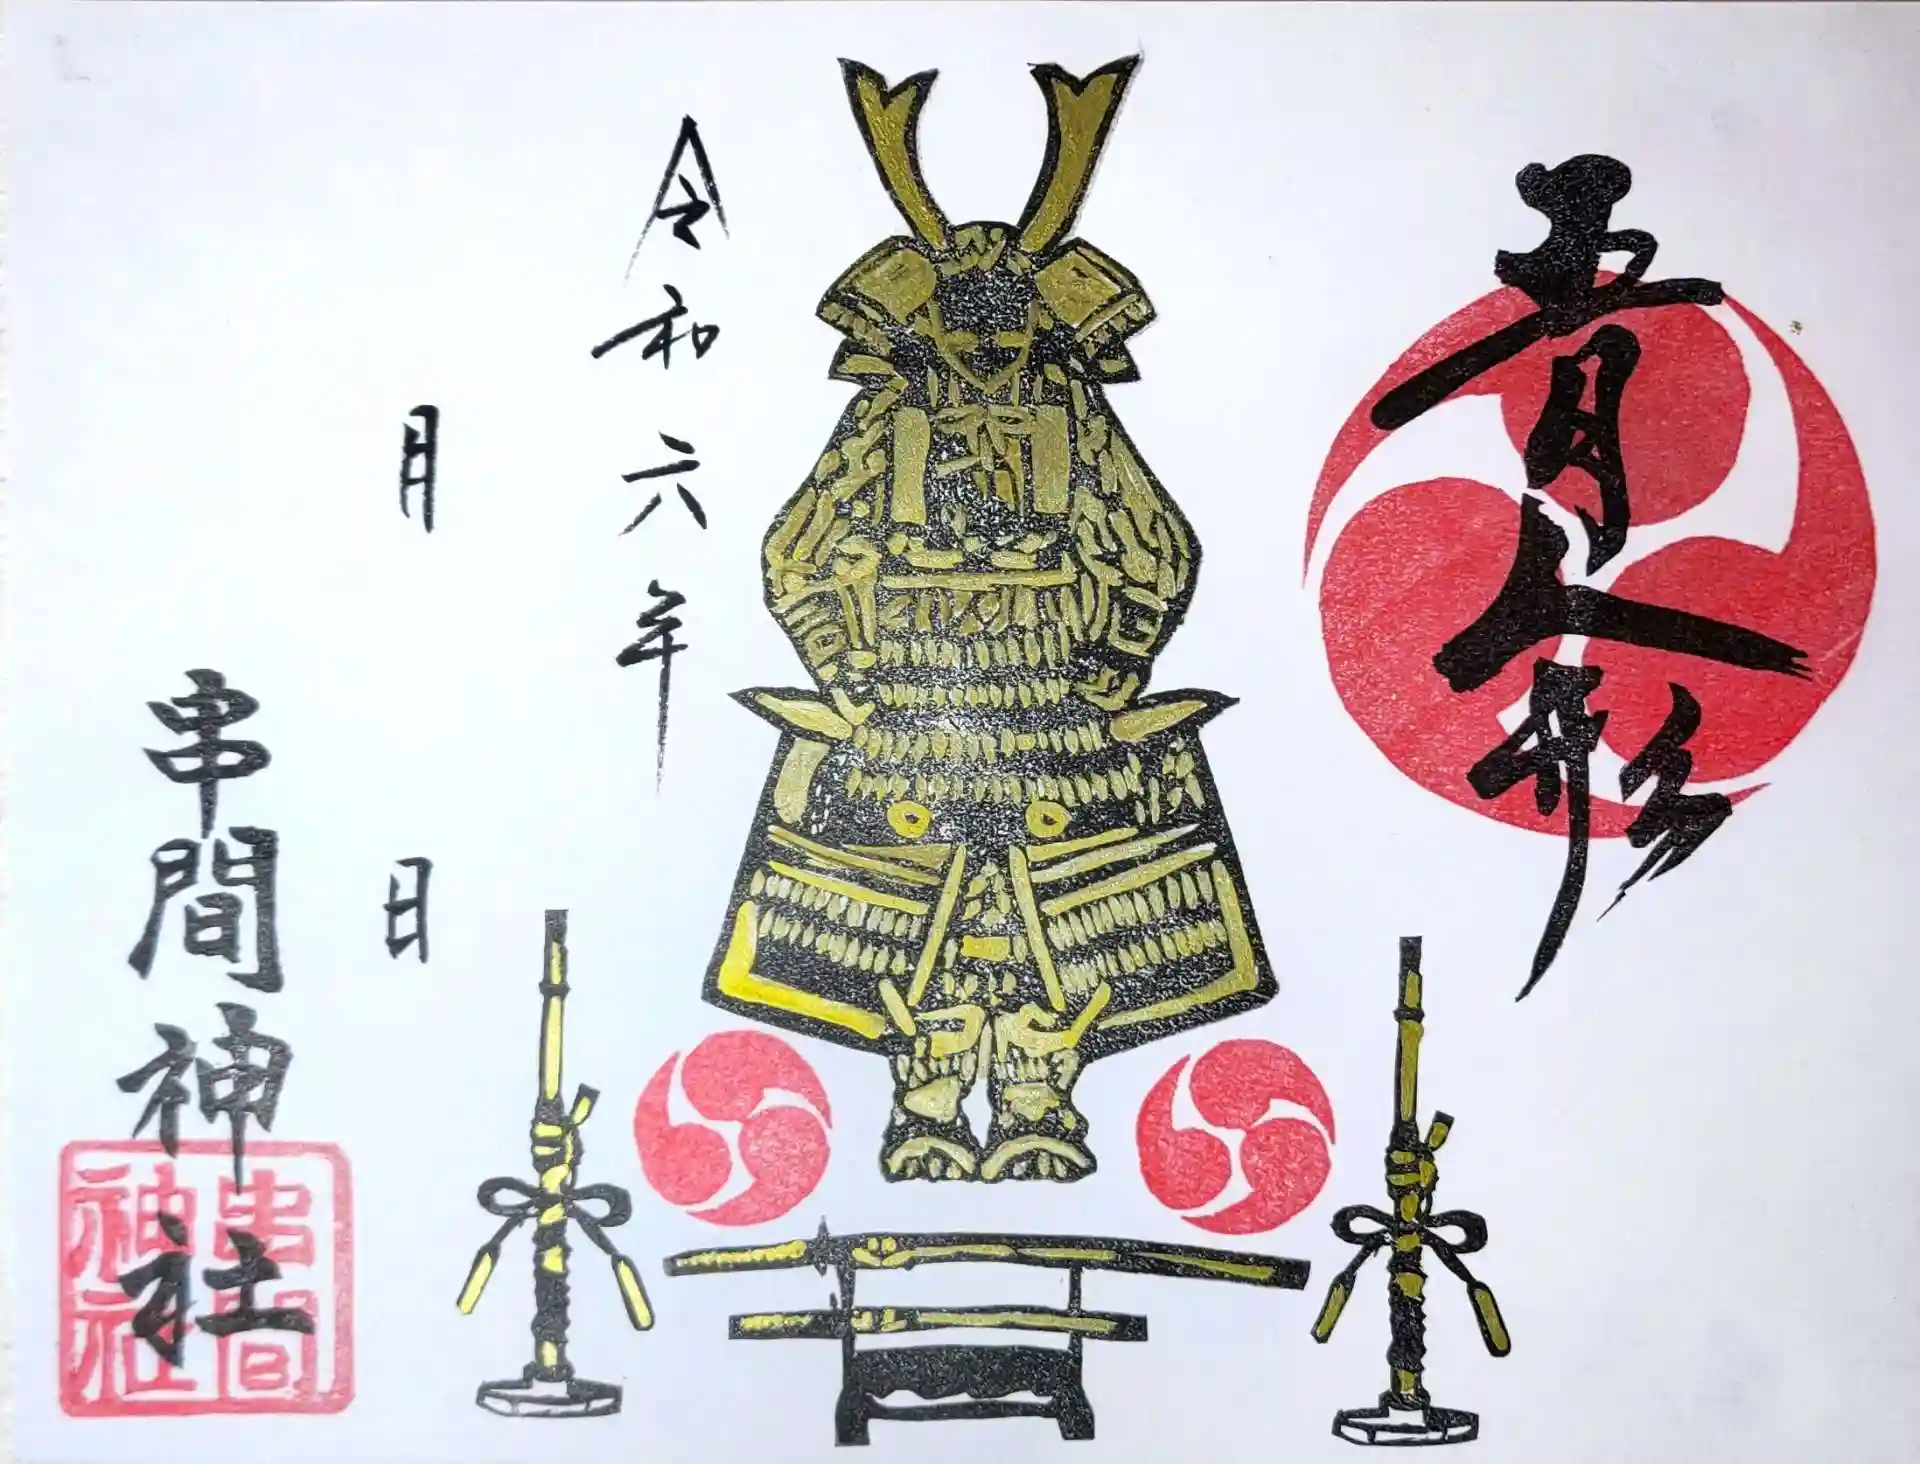 五月人形
令和六年
月 日
串間神社
串間
神社